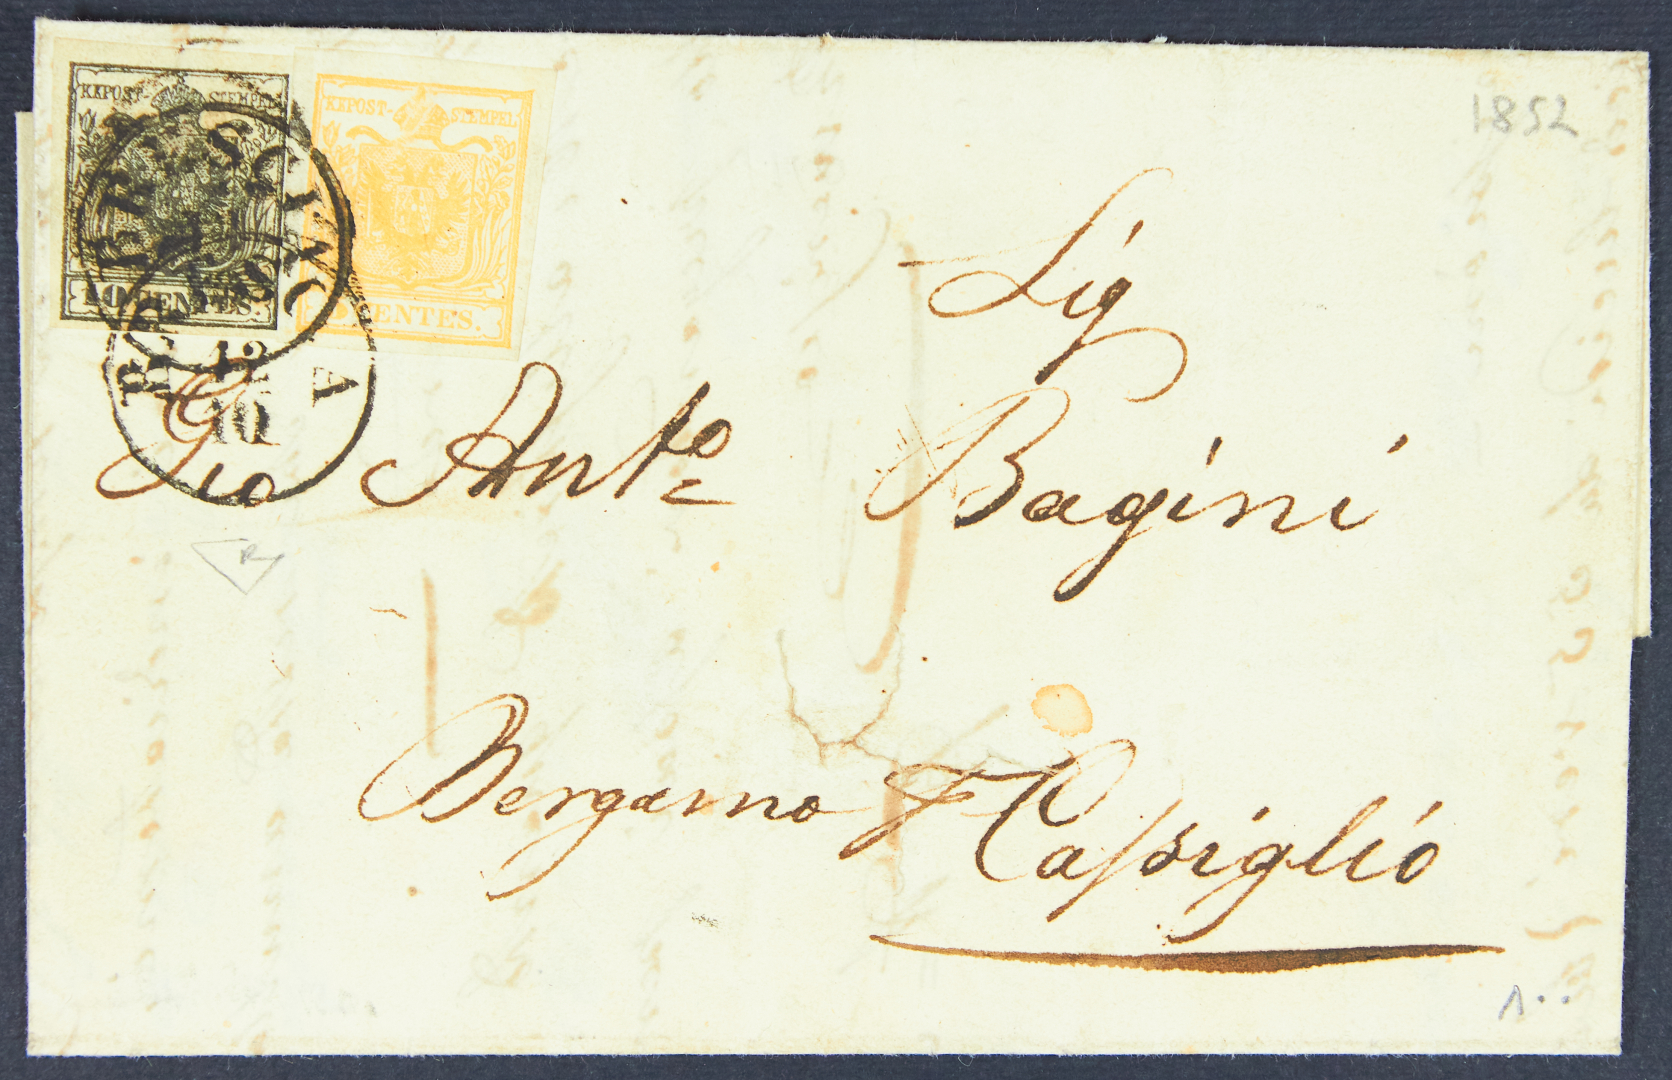 KKPOST-STEMPEL
10 CENTES.
KKPOST-STEMPEL
5 CENTES.
BRESCIA
12
10
1852
Sig
Gio Anto Bagini
Bergamo
Cassiglio